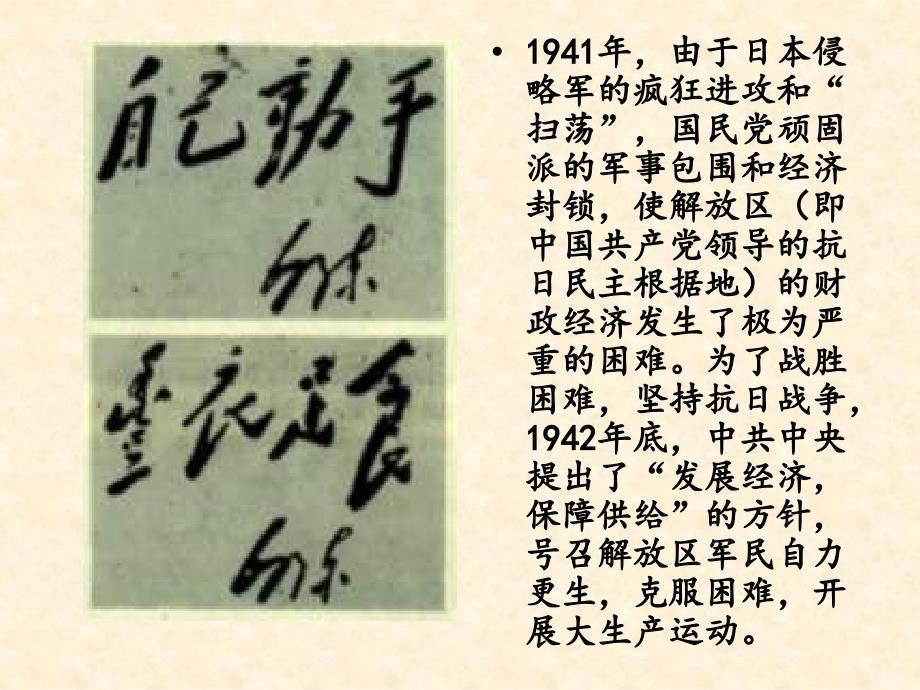 自己動手
泽东
豐衣足食
泽东
• 1941年，由于日本侵
略军的疯狂进攻和“
扫荡”，国民党顽固
派的军事包围和经济
封锁，使解放区（即
中国共产党领导的抗
日民主根据地）的财
政经济发生了极为严
重的困难。为了战胜
困难，坚持抗日战争，
1942年底，中共中央
提出了“发展经济，
保障供给”的方针，
号召解放区军民自力
更生，克服困难，开
展大生产运动。